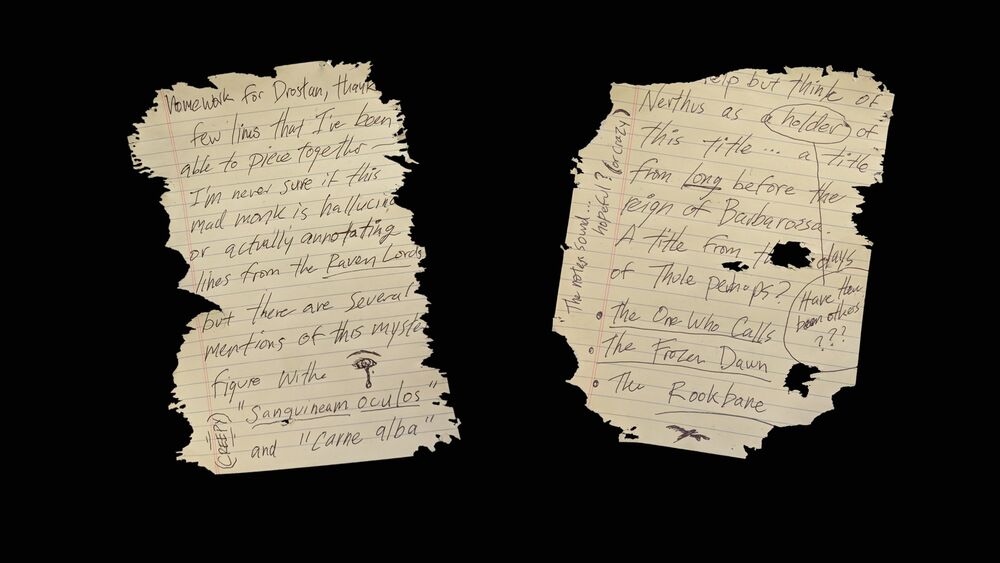 homework for Drostan, thank
few lines that I've been
able to piece together –
I'm never sure if this
mad monk is hallucina
or actually annotating
lines from the Raven Lords
but there are several
mentions of this myste
figure withe
"Sanguineam oculos"
and "Carne alba"
(CREEPY)
elp but think of
Nerthus as a holder of
this title... a title
from long before the
reign of Barbarossa.
A title from th days
of Thule perhaps?
• The One Who Calls
• The Frozen Dawn
• The Rookbane
The notes sound...
hopeful? (or crazy)
(Have ther
been others
???